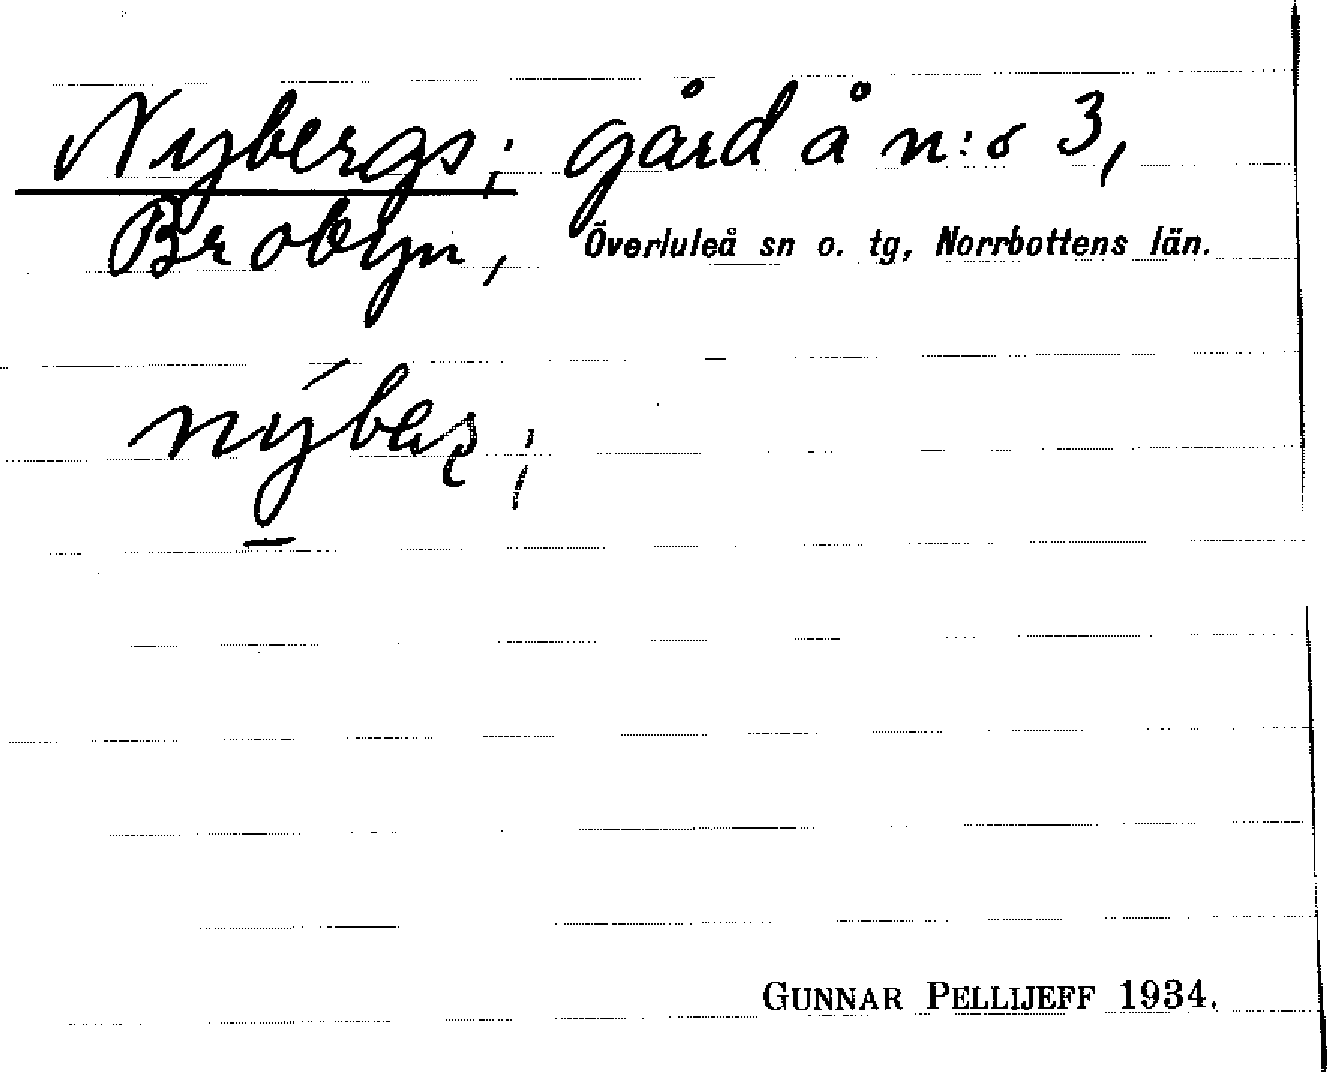 Nybergs; gård å n:o 3,
Brobyn, Överluleå sn o. tg, Norrbottens län.
nýbeʂ;
GUNNAR PELLIJEFF 1934.